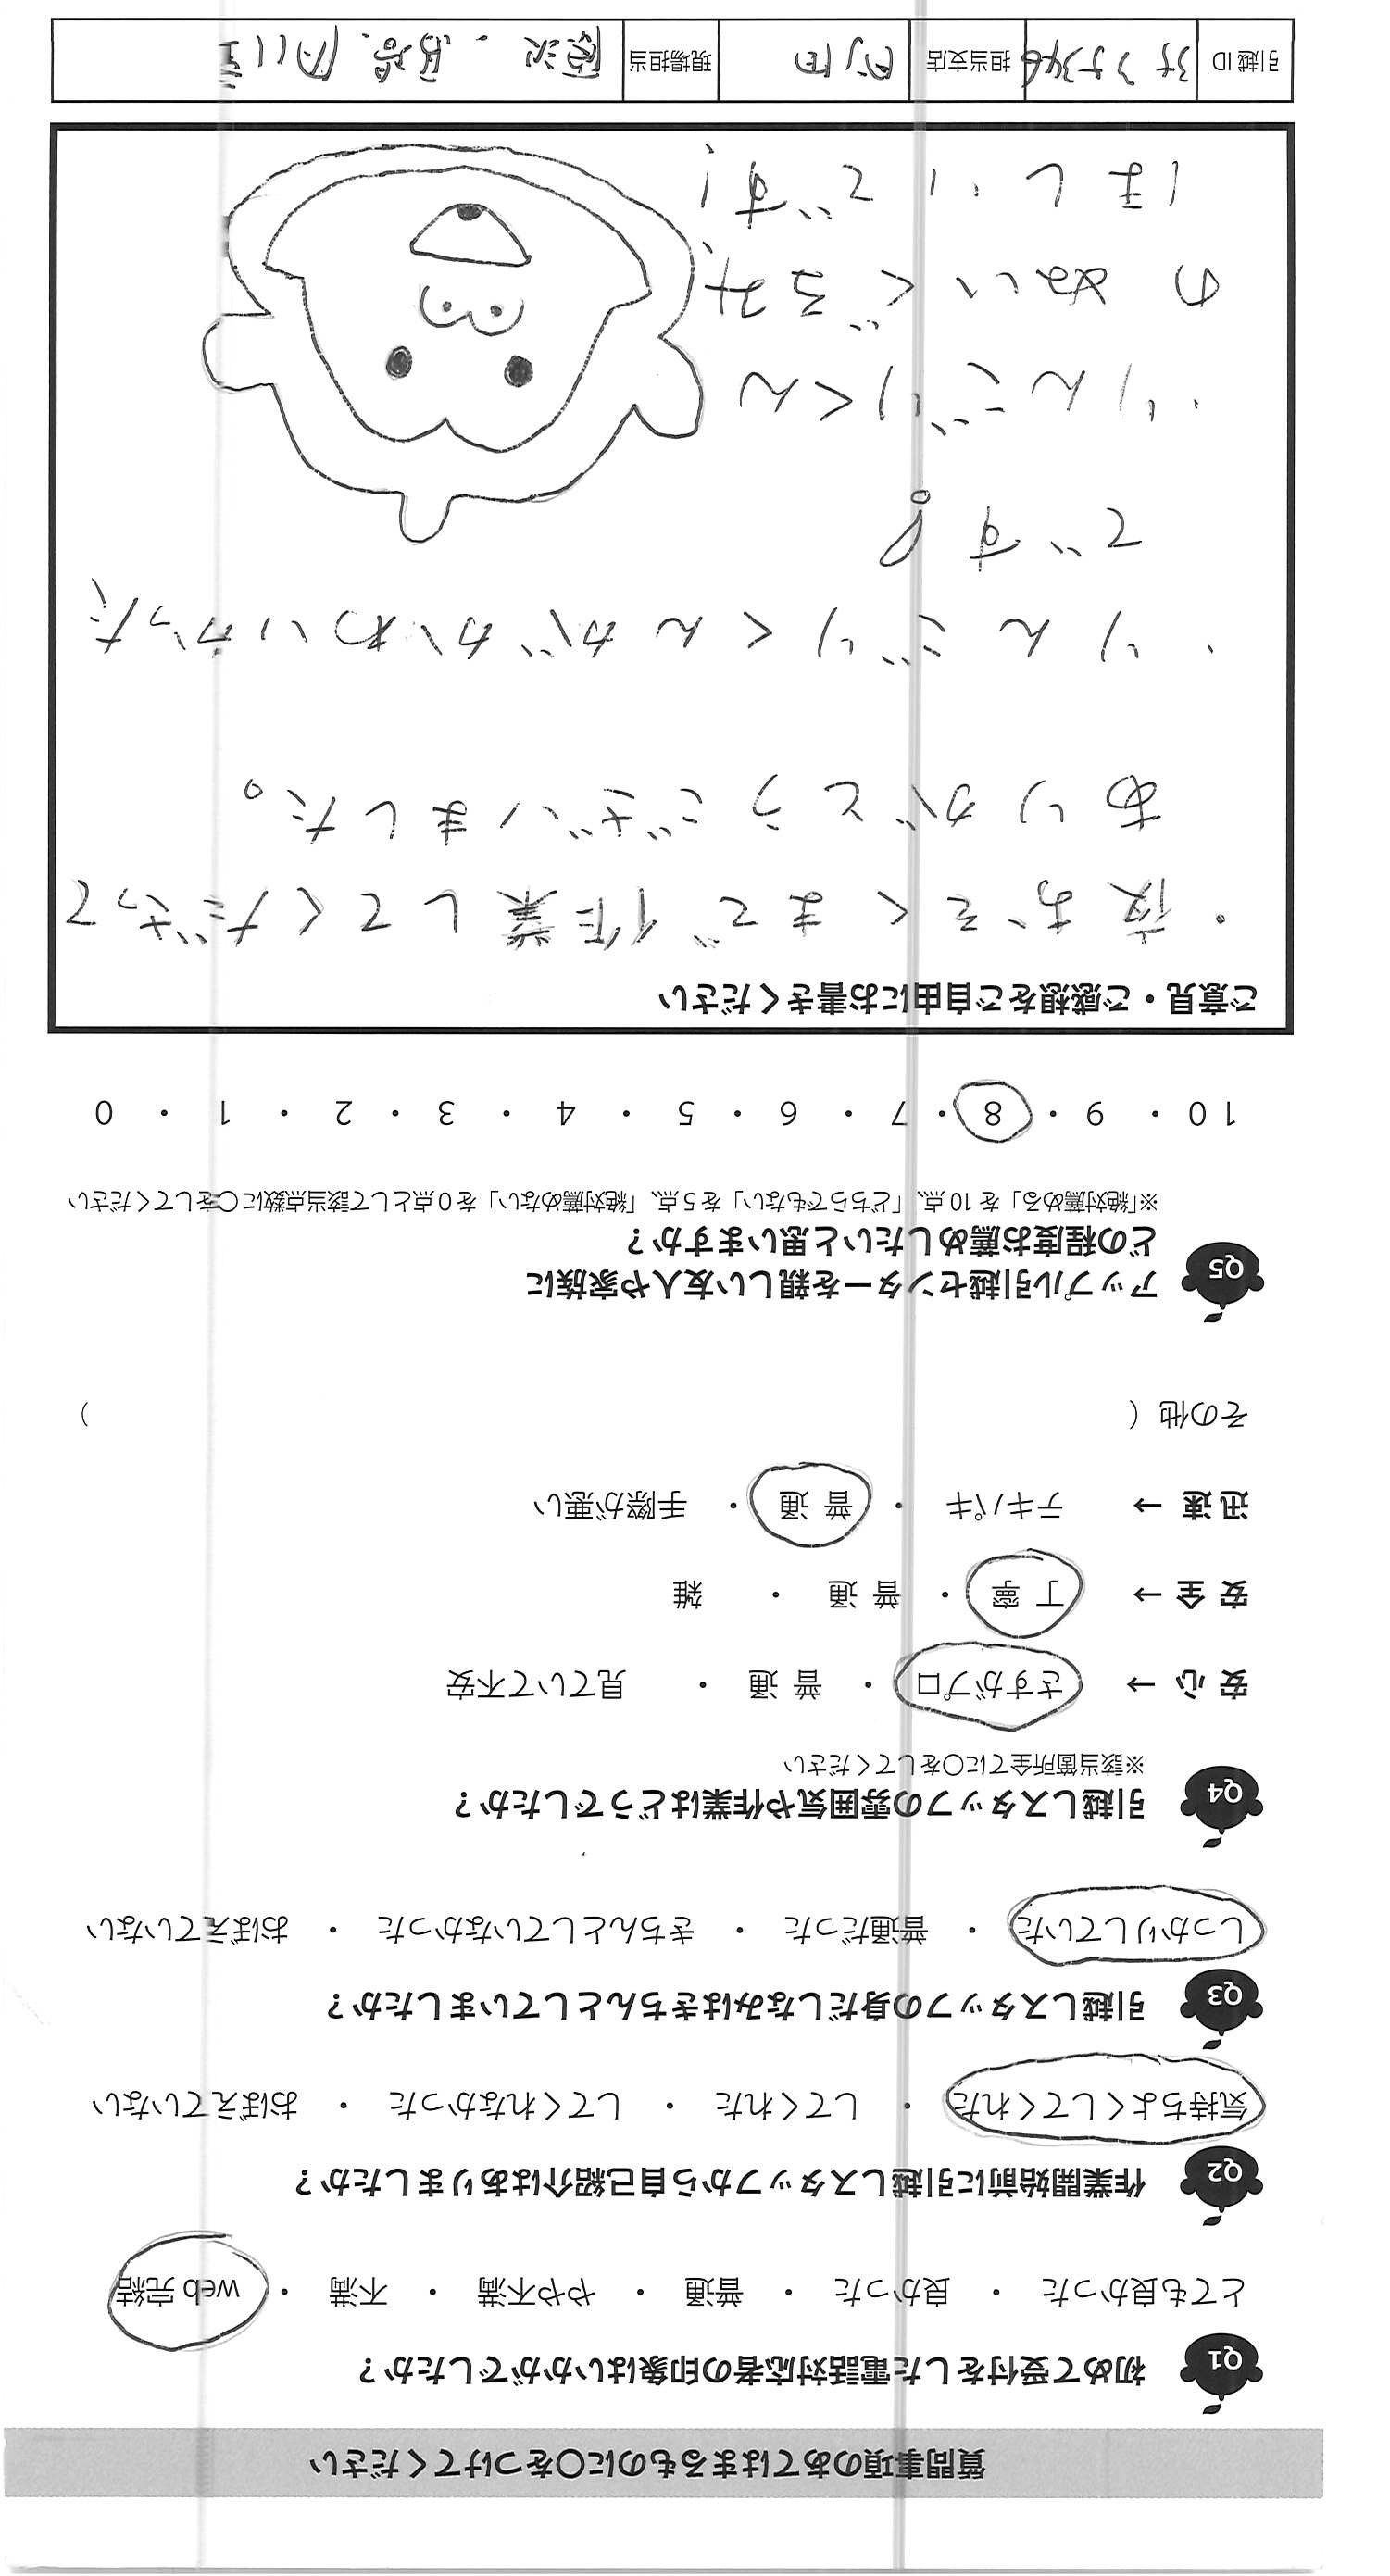 質問事項のあてはまるものに○をつけてください
Q1 初めて受付をした電話対応者の印象はいかがでしたか？
とても良かった ・ 良かった ・ 普通 ・ やや不満 ・ 不満 ・ web 完結
Q2 作業開始前に引越しスタッフから自己紹介はありましたか？
気持ちよくしてくれた ・ してくれた ・ してくれなかった ・ おぼえていない
Q3 引越しスタッフの身だしなみはきちんとしていましたか？
しっかりしていた ・ 普通だった ・ きちんとしていなかった ・ おぼえていない
Q4 引越しスタッフの雰囲気や作業はどうでしたか？
※該当箇所全てに○をしてください
安 心 → さすがプロ ・ 普 通 ・ 見ていて不安
安 全 → 丁 寧 ・ 普 通 ・ 雑
迅 速 → テキパキ ・ 普 通 ・ 手際が悪い
その他（ ）
Q5 アップル引越センターを親しい友人や家族に
どの程度お薦めしたいと思いますか？
※「絶対薦める」を 10 点、「どちらでもない」を 5 点、「絶対薦めない」を 0 点として該当点数に○をしてください
10 ・ 9 ・ 8 ・ 7 ・ 6 ・ 5 ・ 4 ・ 3 ・ 2 ・ 1 ・ 0
ご意見・ご感想をご自由にお書きください
・夜おそくまで作業してくださって
ありがとうございました。
・りんごりくんがかわいかった
です。
・りんごりくん
のぬいぐるみ
ほしいです!
引越 ID 担当支店 町田 現場担当